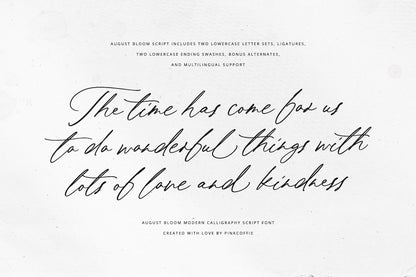 AUGUST BLOOM SCRIPT INCLUDES TWO LOWERCASE LETTER SETS, LIGATURES,
TWO LOWERCASE ENDING SWASHES, BONUS ALTERNATES,
AND MULTILINGUAL SUPPORT
The time has come for us
to do wonderful things with
lots of love and kindness
AUGUST BLOOM MODERN CALLIGRAPHY SCRIPT FONT
CREATED WITH LOVE BY PINKCOFFIE